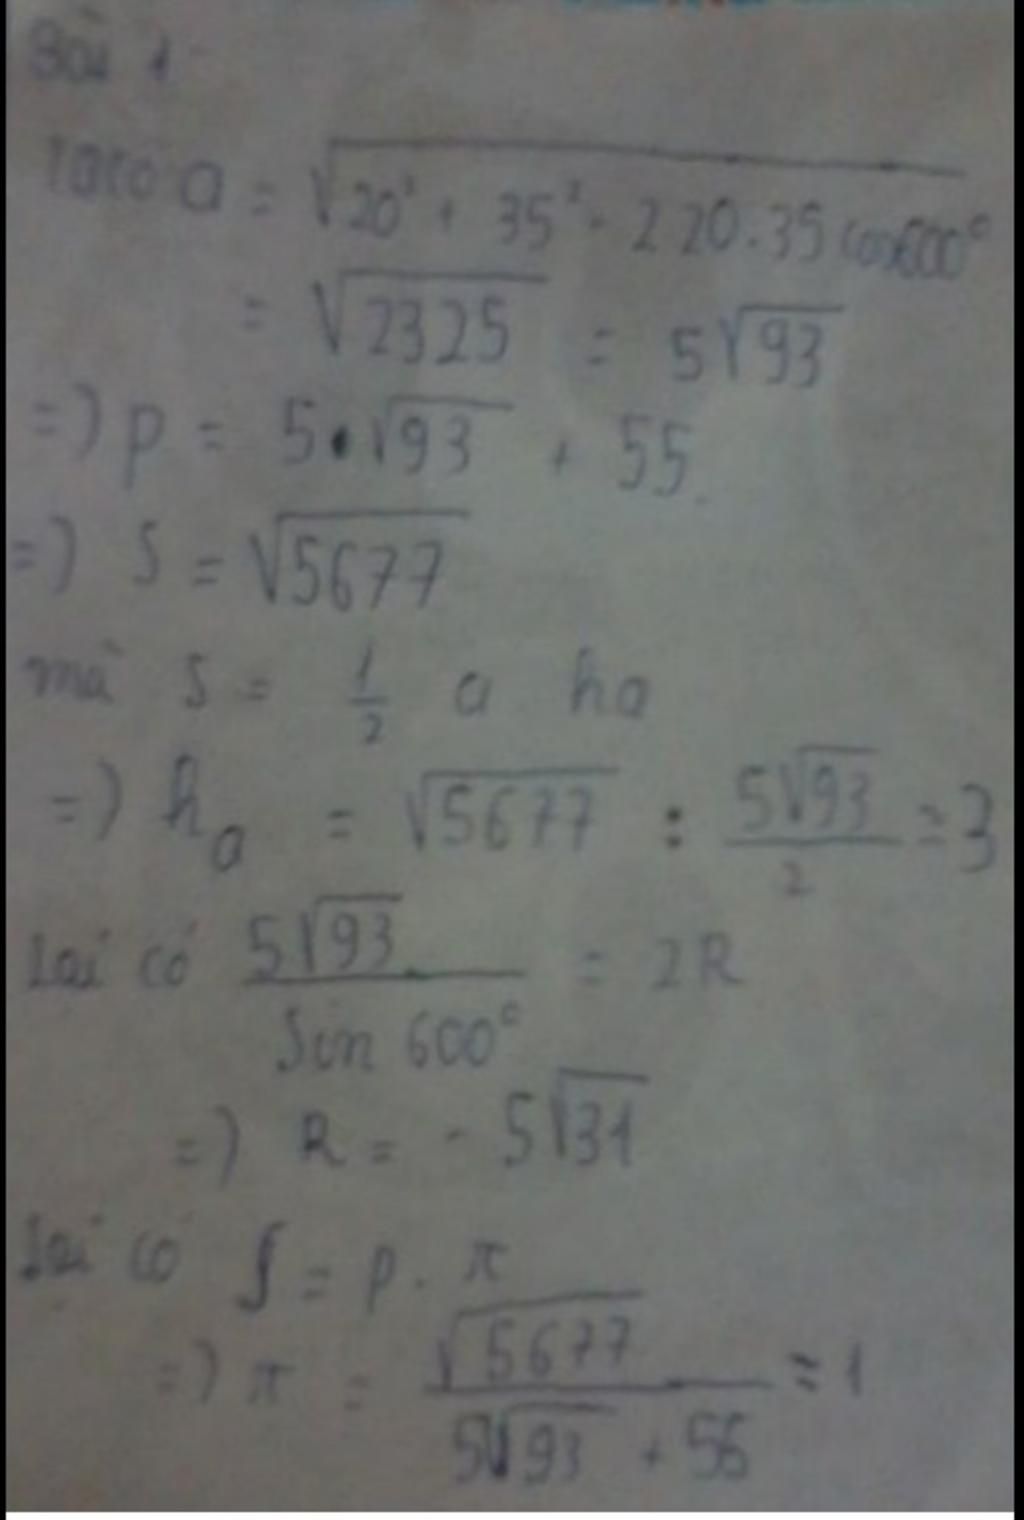 Bài 1
Ta có a = √20² + 35² - 2 20.35 cos600°
= √2325 = 5√93
=) p = 5.√93 + 55.
=) S = √5677
mà S = 1/2 a ha
=) ha = √5677 : 5√93/2 = 3
Lại có 5√93/Sin 600° = 2R
=) R = - 5√31
Lại có S = p. r
=) r = √5677/5√93 + 55 = 1